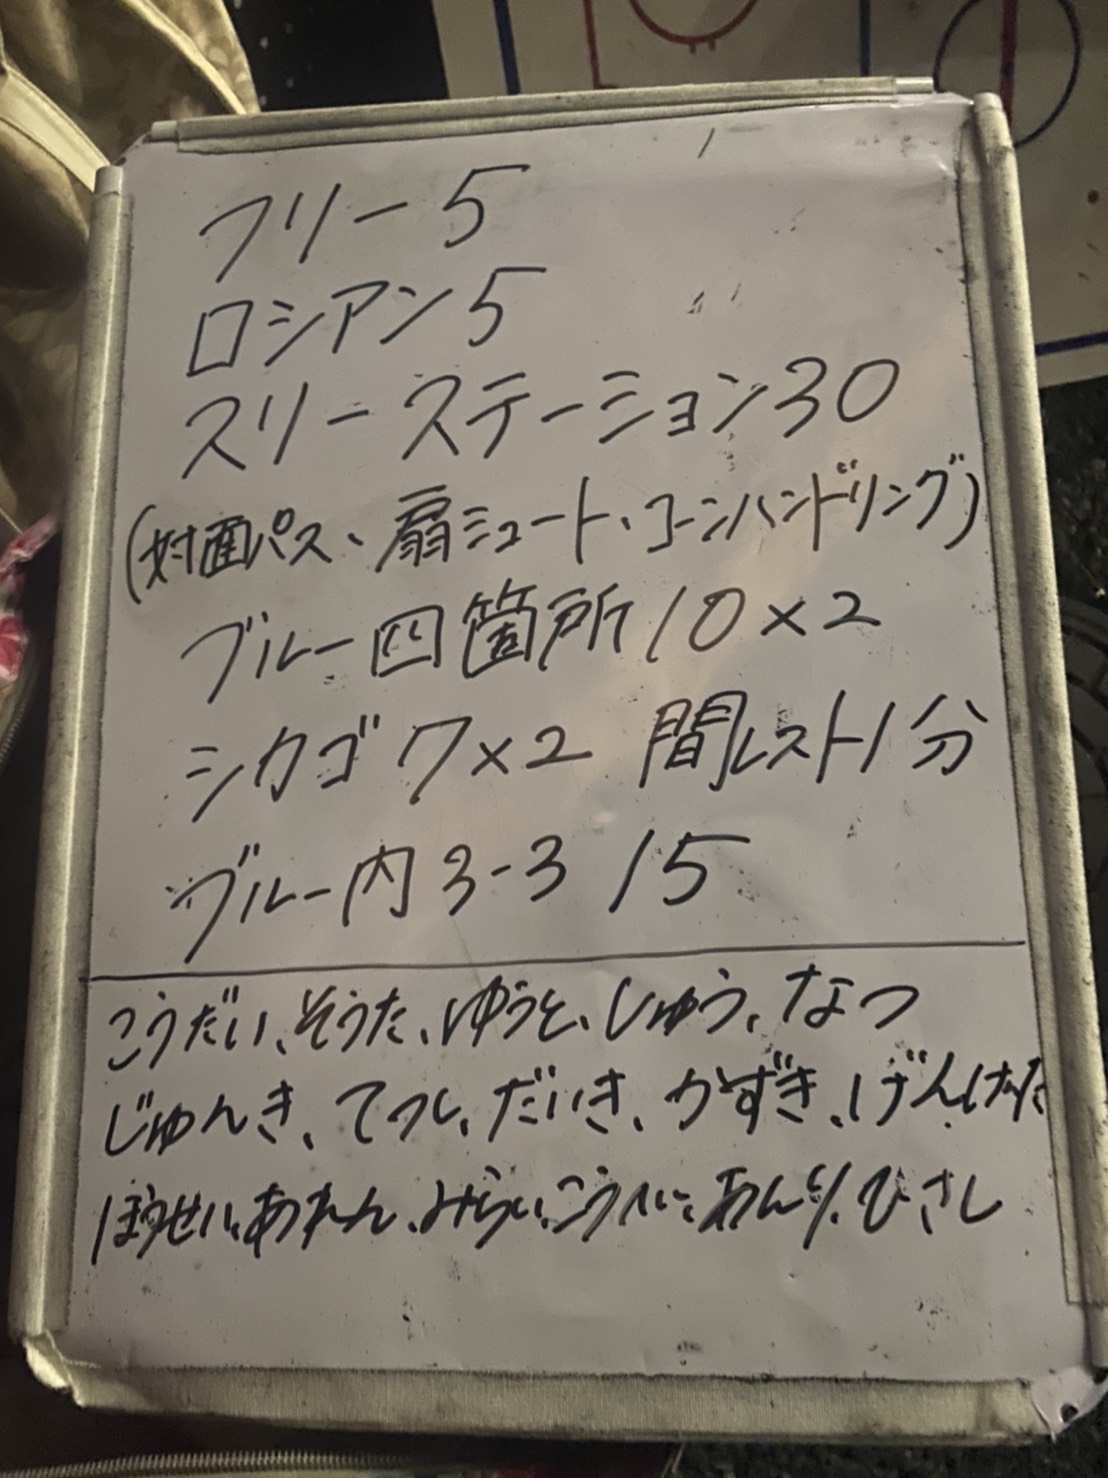 フリー5
ロシアン5
スリーステーション30
(対面パス、扇シュート、コーンハンドリング)
ブルー四箇所10×2
シカゴ7×2 間レスト1分
ブルー内3-3 15
こうだい、そうた、ゆうと、しゅう、なつ
じゅんき、てつし、だいき、かずき、げん、けんた
ほうせい、あれん、みらい、こうへい、あんり、ひさし